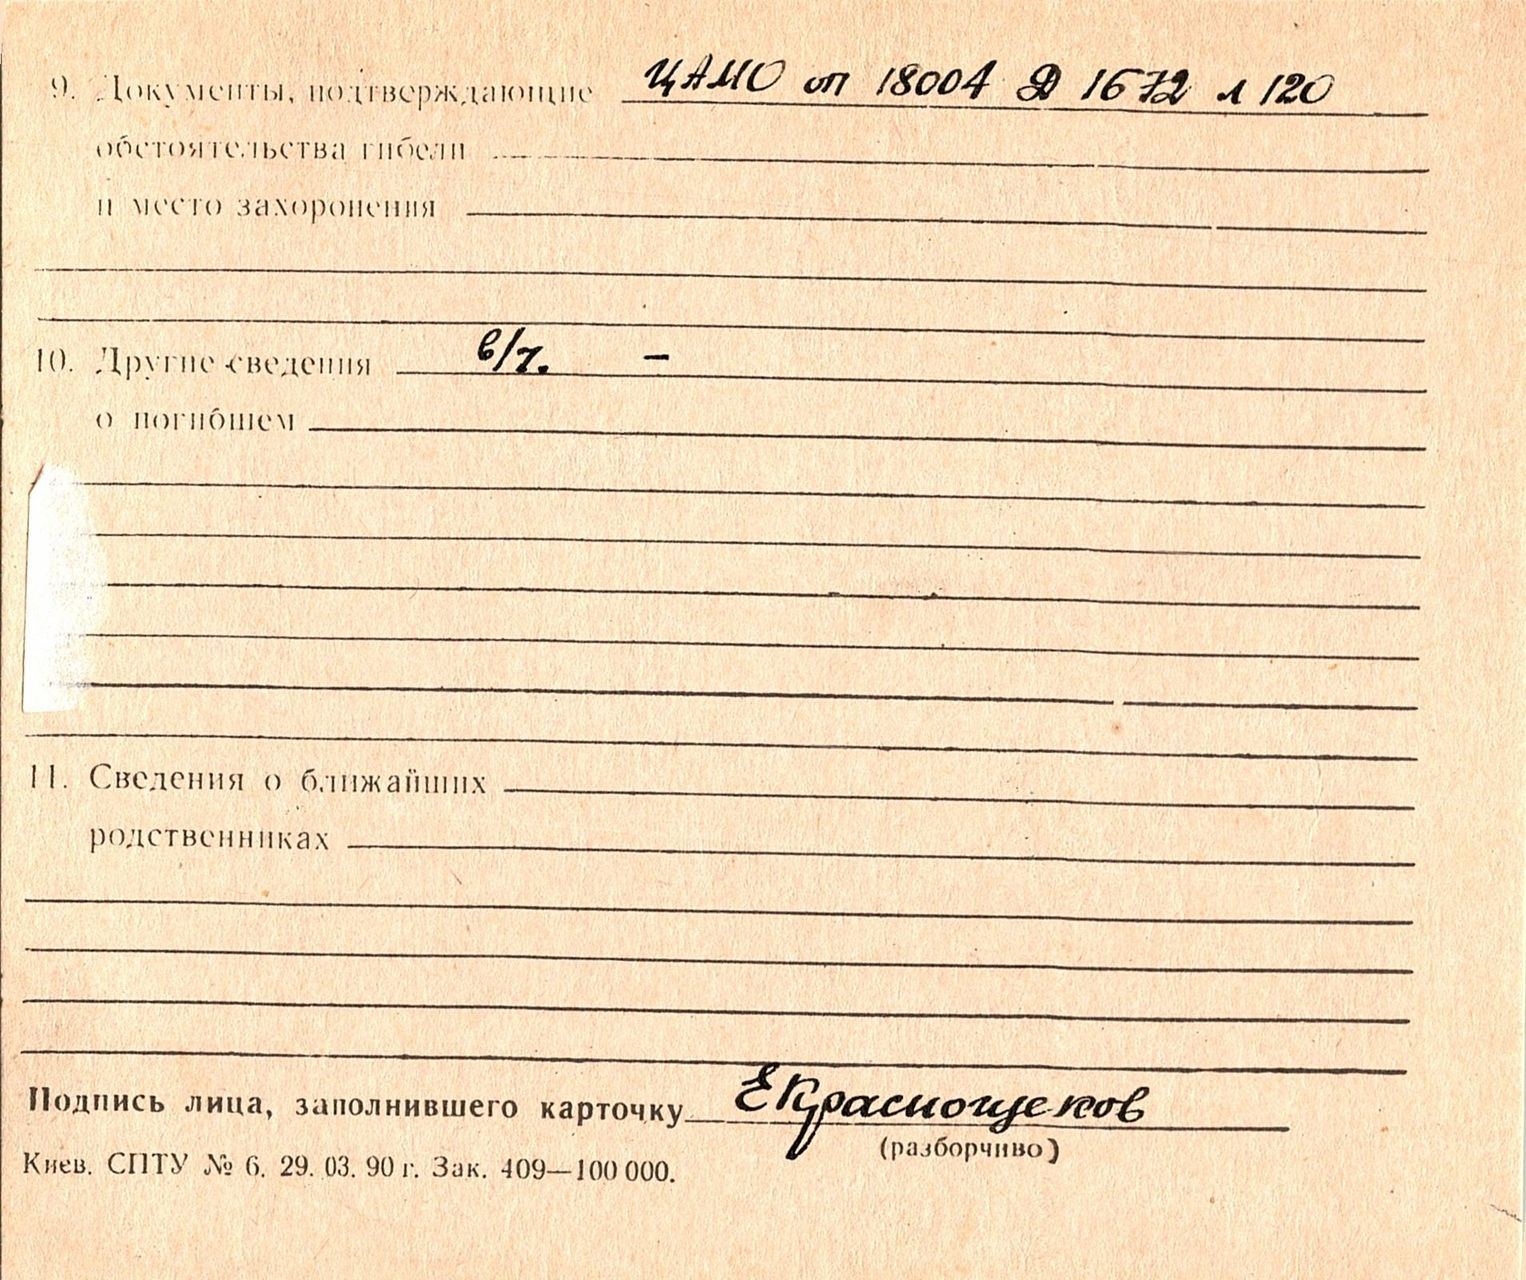 9. Документы, подтверждающие ЦАМО оп 18004 Д 1672 л 120
обстоятельства гибели
и место захоронения
10. Другие сведения в/ч. –
о погибшем
11. Сведения о ближайших
родственниках
Подпись лица, заполнившего карточку ЕКраснощеков
(разборчиво)
Киев. СПТУ № 6. 29. 03. 90 г. Зак. 409—100 000.